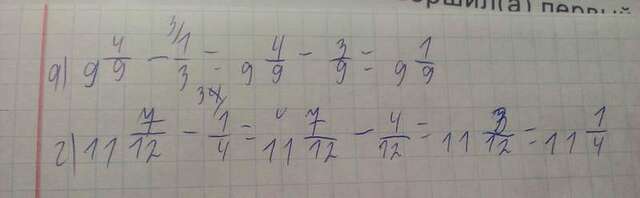 ершил(а) первый
д) 9 4/9 - 1/3 = 9 4/9 - 3/9 = 9 1/9
г) 11 7/12 - 1/4 = 11 7/12 - 4/12 = 11 3/12 = 11 1/4